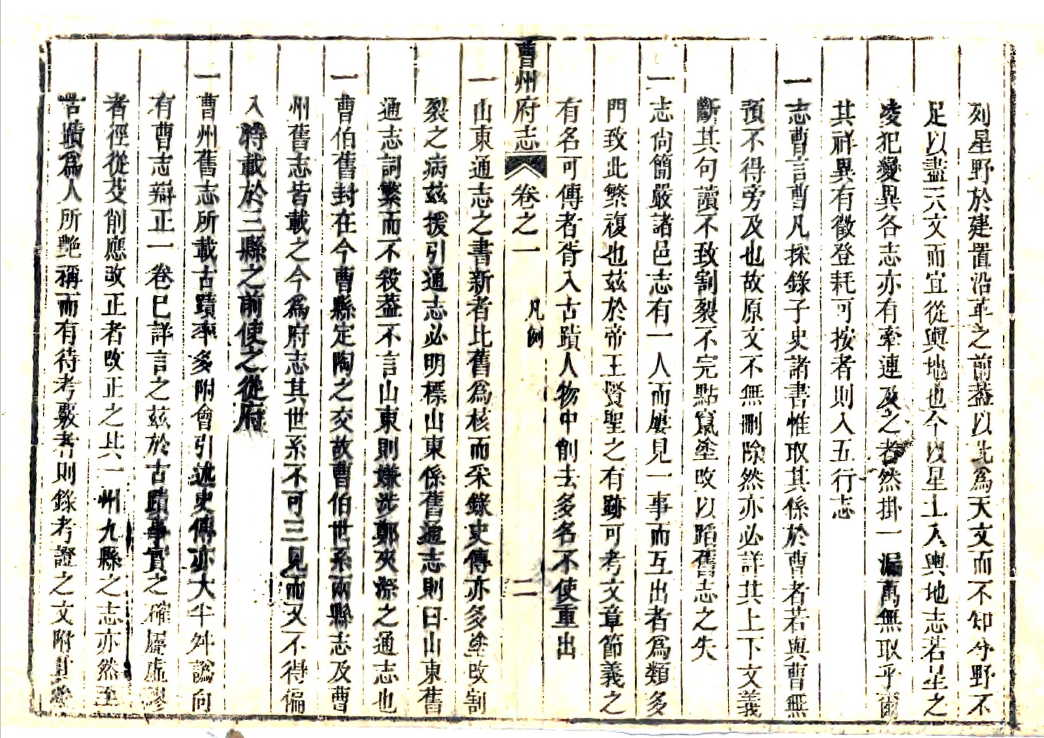 列星野於建置沿革之前蓋以此為天文而不知分野不
足以盡天文而宜從輿地也今以星土入輿地志若星之
凌犯變異各志亦有牽連及之者然掛一漏萬無取乎爾
其祥異有徵登耗可按者則入五行志
一志曹言曹凡採錄子史諸書惟取其係於曹者若與曹無
預不得旁及也故原文不無刪除然亦必詳其上下文義
斷其句讀不致割裂不完點竄塗改以蹈舊志之失
一志尚簡嚴諸邑志有一人而屢見一事而互出者為類多
門致此繁複也茲於帝王賢聖之有跡可考文章節義之
有名可傳者胥入古蹟人物中削去多名不使重出
曹州府志 卷之一 凡例 二
一山東通志之書新者比舊為核而采錄史傳亦多塗改割
裂之病茲援引通志必明標山東係舊通志則曰山東舊
通志詞繁而不殺葢不言山東則嫌涉鄭夾漈之通志也
一曹伯舊封在今曹縣定陶之交故曹伯世系兩縣志及曹
州舊志皆載之今為府志其世系不可三見而又不得偏
入聘載於三縣之前使之從府
一曹州舊志所載古蹟率多附會引述史傳亦大半舛譌向
有曹志辯正一卷巳詳言之茲於古蹟事實之確屬虛謬
者徑從芟削應改正者改正之其一州九縣之志亦然至
古蹟為人所艷稱而有待考覈者則錄考證之文附其